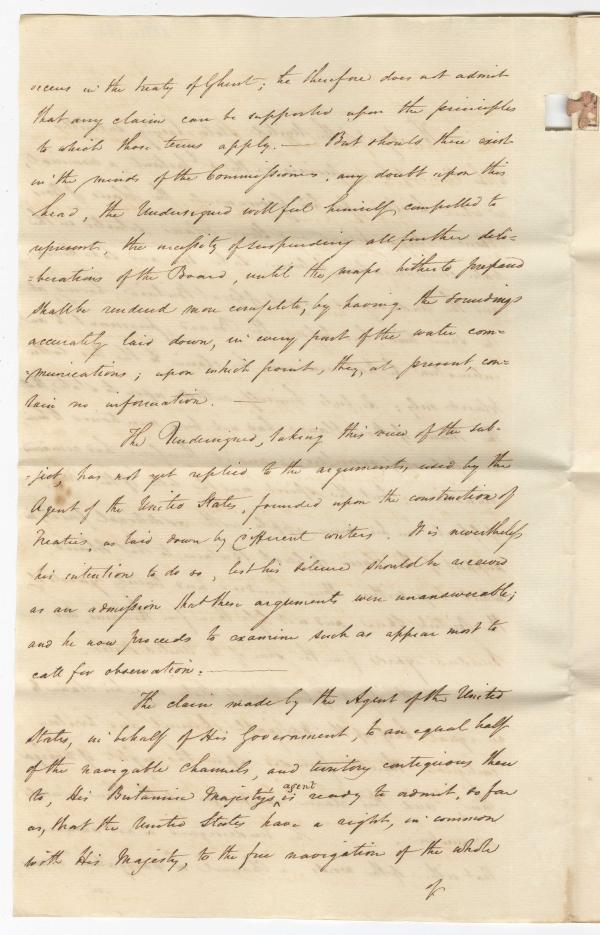 occurs in the treaty of Ghent; he therefore does not admit
that any claim can be supported upon the principles
to which those terms apply. — But should there exist
in the minds of the Commissioners, any doubt upon this
head, the Undersigned will feel himself compelled to
represent, the necessity of suspending all further deli=
=berations of the Board, until the maps hitherto prepared
shall be rendered more complete, by having the soundings
accurately laid down, in every part of the water com=
=munications; upon which point, they, at present, con=
tain no information. —
The Undersigned, taking this view of the sub=
=ject, has not yet replied to the arguments, used by the
Agent of the United States, founded upon the construction of
Treaties, as laid down by different writers. It is nevertheless
his intention to do so, lest his silence should be received
as an admission that these arguments were unanswerable;
and he now proceeds to examine such as appear most to
call for observation. —
The claim made by the Agent of the United
States, in behalf of His Government, to an equal half
of the navigable channels, and territory contiguous there
to, His Britannic Majesty's agent is ready to admit, so far
as, that the United States have a right, in common
with His Majesty, to the free navigation of the whole
of